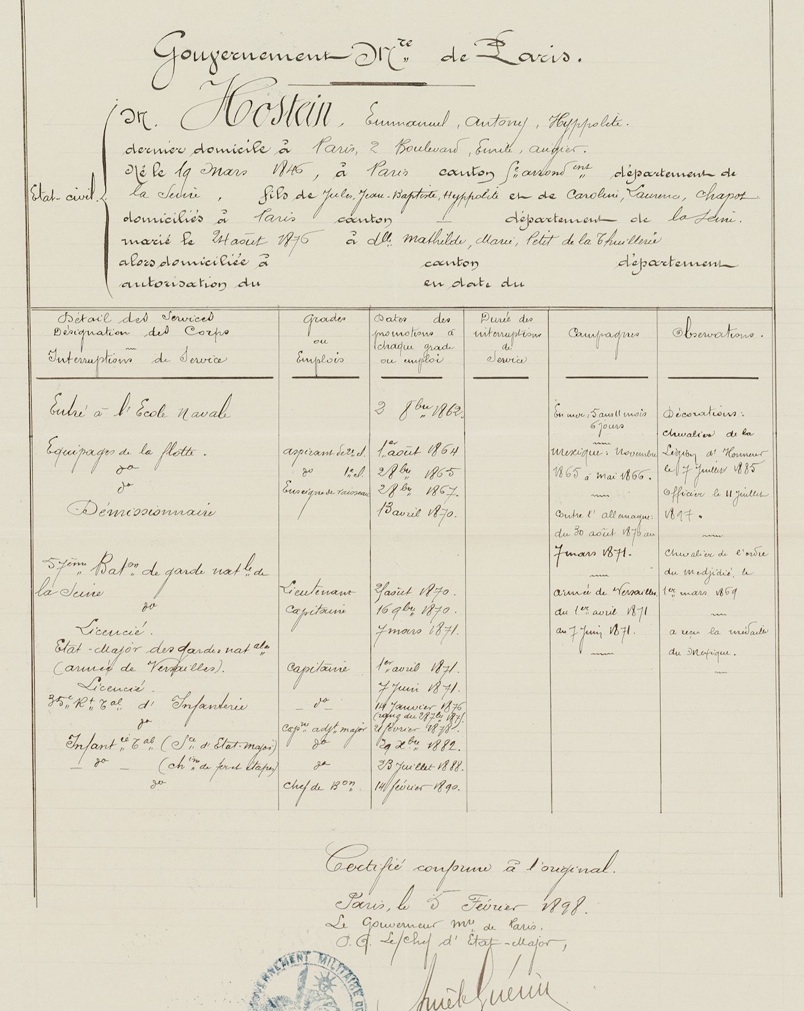 Gouvernement Mre de Paris.
M. Hostein, Emmanuel, Antony, Hyppolite.
dernier domicile à Paris, 2 Boulevard, Emile, augier.
Né le 19 Mars 1846, à Paris canton arrondent département de
Etat-civil la Seine, fils de Jules, Jean-Baptiste, Hyppolite et de Caroline, Laurence, Chapot
domiciliés à Paris canton — département de la Seine.
marié le 24 août 1876 à dlle Mathilde, Marie, Petit de la Thuillerie
alors domiciliée à canton département
autorisation du en date du
Détail des Services
Désignation des Corps
Interruptions de Service
Grades
ou
Emplois
Dates des
promotions à
chaque grade
ou emploi
Durée des
interruptions
de
Service
Campagnes
Observations.
Entré à l'Ecole Navale 2 8bre 1862.
Equipages de la flotte. aspirant de 2e cl. 1er août 1864
do do 1e cl. 2 8bre 1865
do Enseigne de vaisseau 2 8bre 1867.
Démissionnaire 13 avril 1870.
57ème Baton de garde natle de
la Seine Lieutenant 2 août 1870.
do Capitaine 16 9bre 1870.
Licencié. 7 mars 1871.
Etat-Major des gardes natales
(armée de Versailles). Capitaine 1er avril 1871.
Licencié. 7 Juin 1871.
35e Rt Tal d'Infanterie — do 14 Janvier 1876
(rang du 28 7bre 1871.
do Capne adjt major 2 février 1878.
Infantrie Tale (Sce d'Etat-Major) do 29 Xbre 1882.
— do — (chin de fer et étapes) do 23 Juillet 1888.
do Chef de Bon 14 février 1890.
En mer: 5 ans 11 mois
6 jours
Mexique: Novembre
1865 à mai 1866.
Contre l'allemagne:
du 30 août 1870 au
7 mars 1871.
armée de Versailles
du 1er avril 1871
au 7 Juin 1871.
Décorations:
Chevalier de la
Légion d'Honneur
le 7 Juillet 1885
Officier le 11 Juillet
1897.
Chevalier de l'ordre
du Medjidié, le
1er mars 1869
a reçu la médaille
du Mexique.
Certifié conforme à l'original.
Paris, le 5 Février 1898.
Le Gouverneur mre de Paris.
P.O. Le Chef d'Etat-Major,
GOUVERNEMENT MILITAIRE DE
Guérin